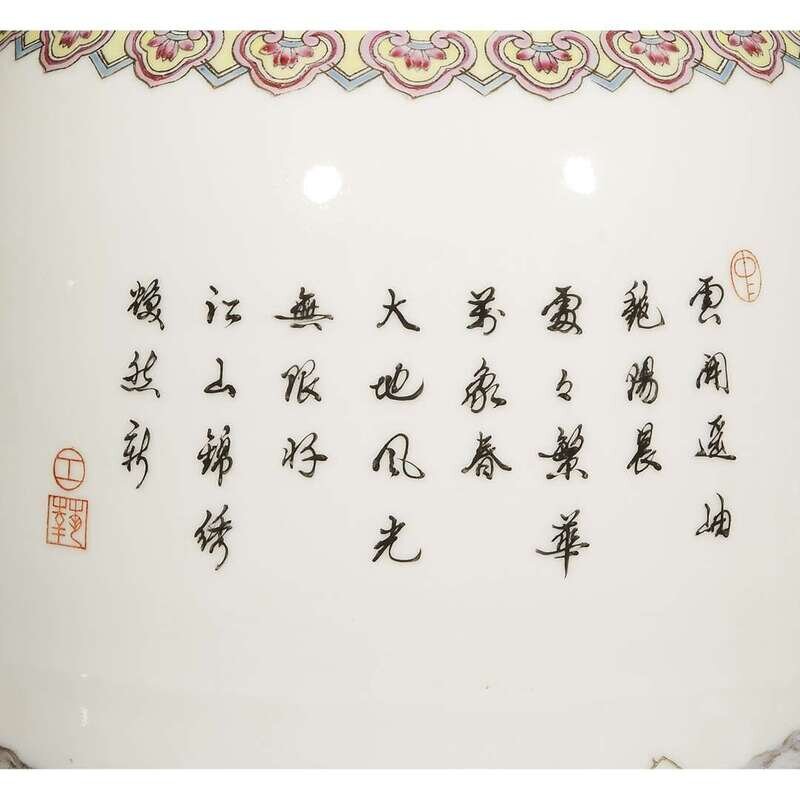 雲開遥岫
艷陽晨
處々繁華
萬象春
大地風光
無限好
江山錦綉
煥然新
工